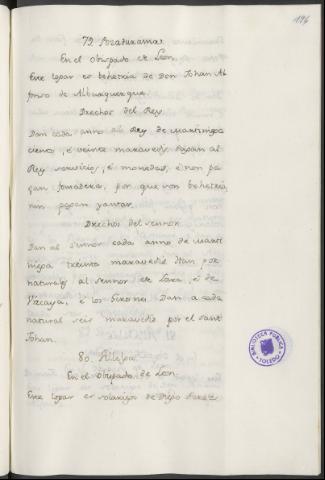 196
79 Pozadurama.
En el Obispado de Leon.
Este logar es behetria de Don Johan Al
fonso de Alburquerque.
Drechos del Rey
Dan cada anno al Rey de Martiniega
ciento, é veinte maravedis. Pagan al
Rey servicios, é monedas, é non pa
gan fonsadera, por que son behetria,
nin pagan yantar.
Drechos del sennor
Dan al sennor cada anno de Marti
niega treinta maravedis. Han por
naturales al sennor de Lara, é de
Vizcaya, é los Girones. Dan a cada
natural seis maravedis por el sant
Johan.
80.
En el Obispado de Leon.
Este logar es solariego de Diego
BIBLIOTECA PUBLICA
TOLEDO